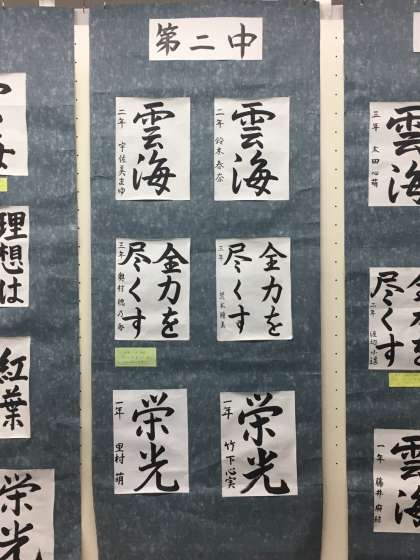 第二中
雲海
二年 鈴木春奈
雲海
二年 宇佐美まゆ
全力を
尽くす
三年
全力を
尽くす
三年 奥村
栄光
一年 竹下心実
栄光
一年 里村萌
雲海
三年 太田心萌
全力を
尽くす
二年 渡辺小遥
雲海
一年 藤井
理想は
紅葉
栄光